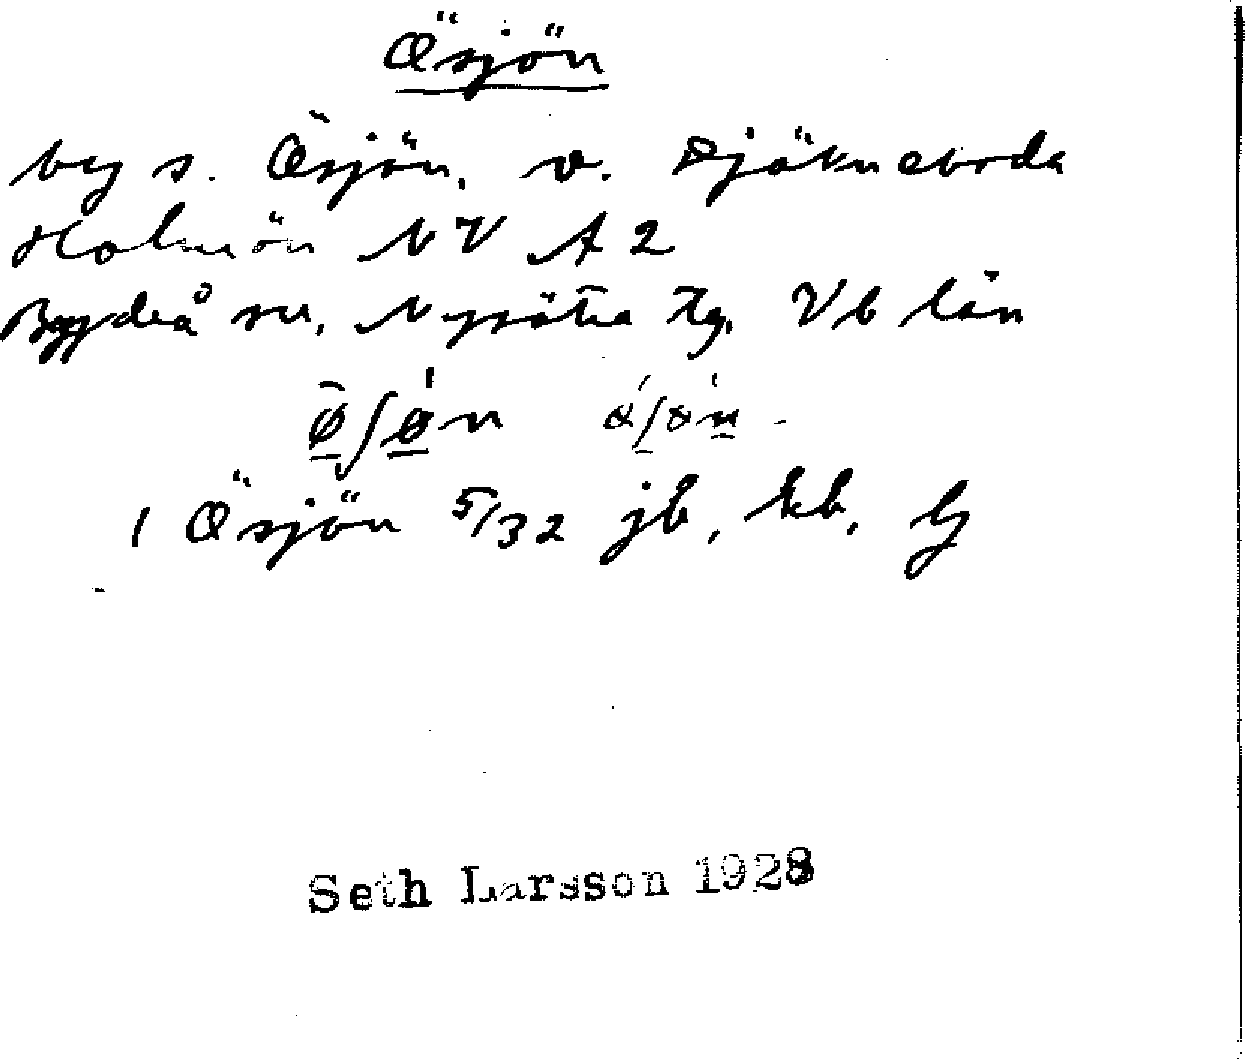 Ösjön
by s. Ösjön, v. Djäkneboda
Holmön NV A 2
Bygdeå sn, Nysätra tg, Vb län
1 Ösjön 5/32 jb, kb, G
Seth Larsson 1928